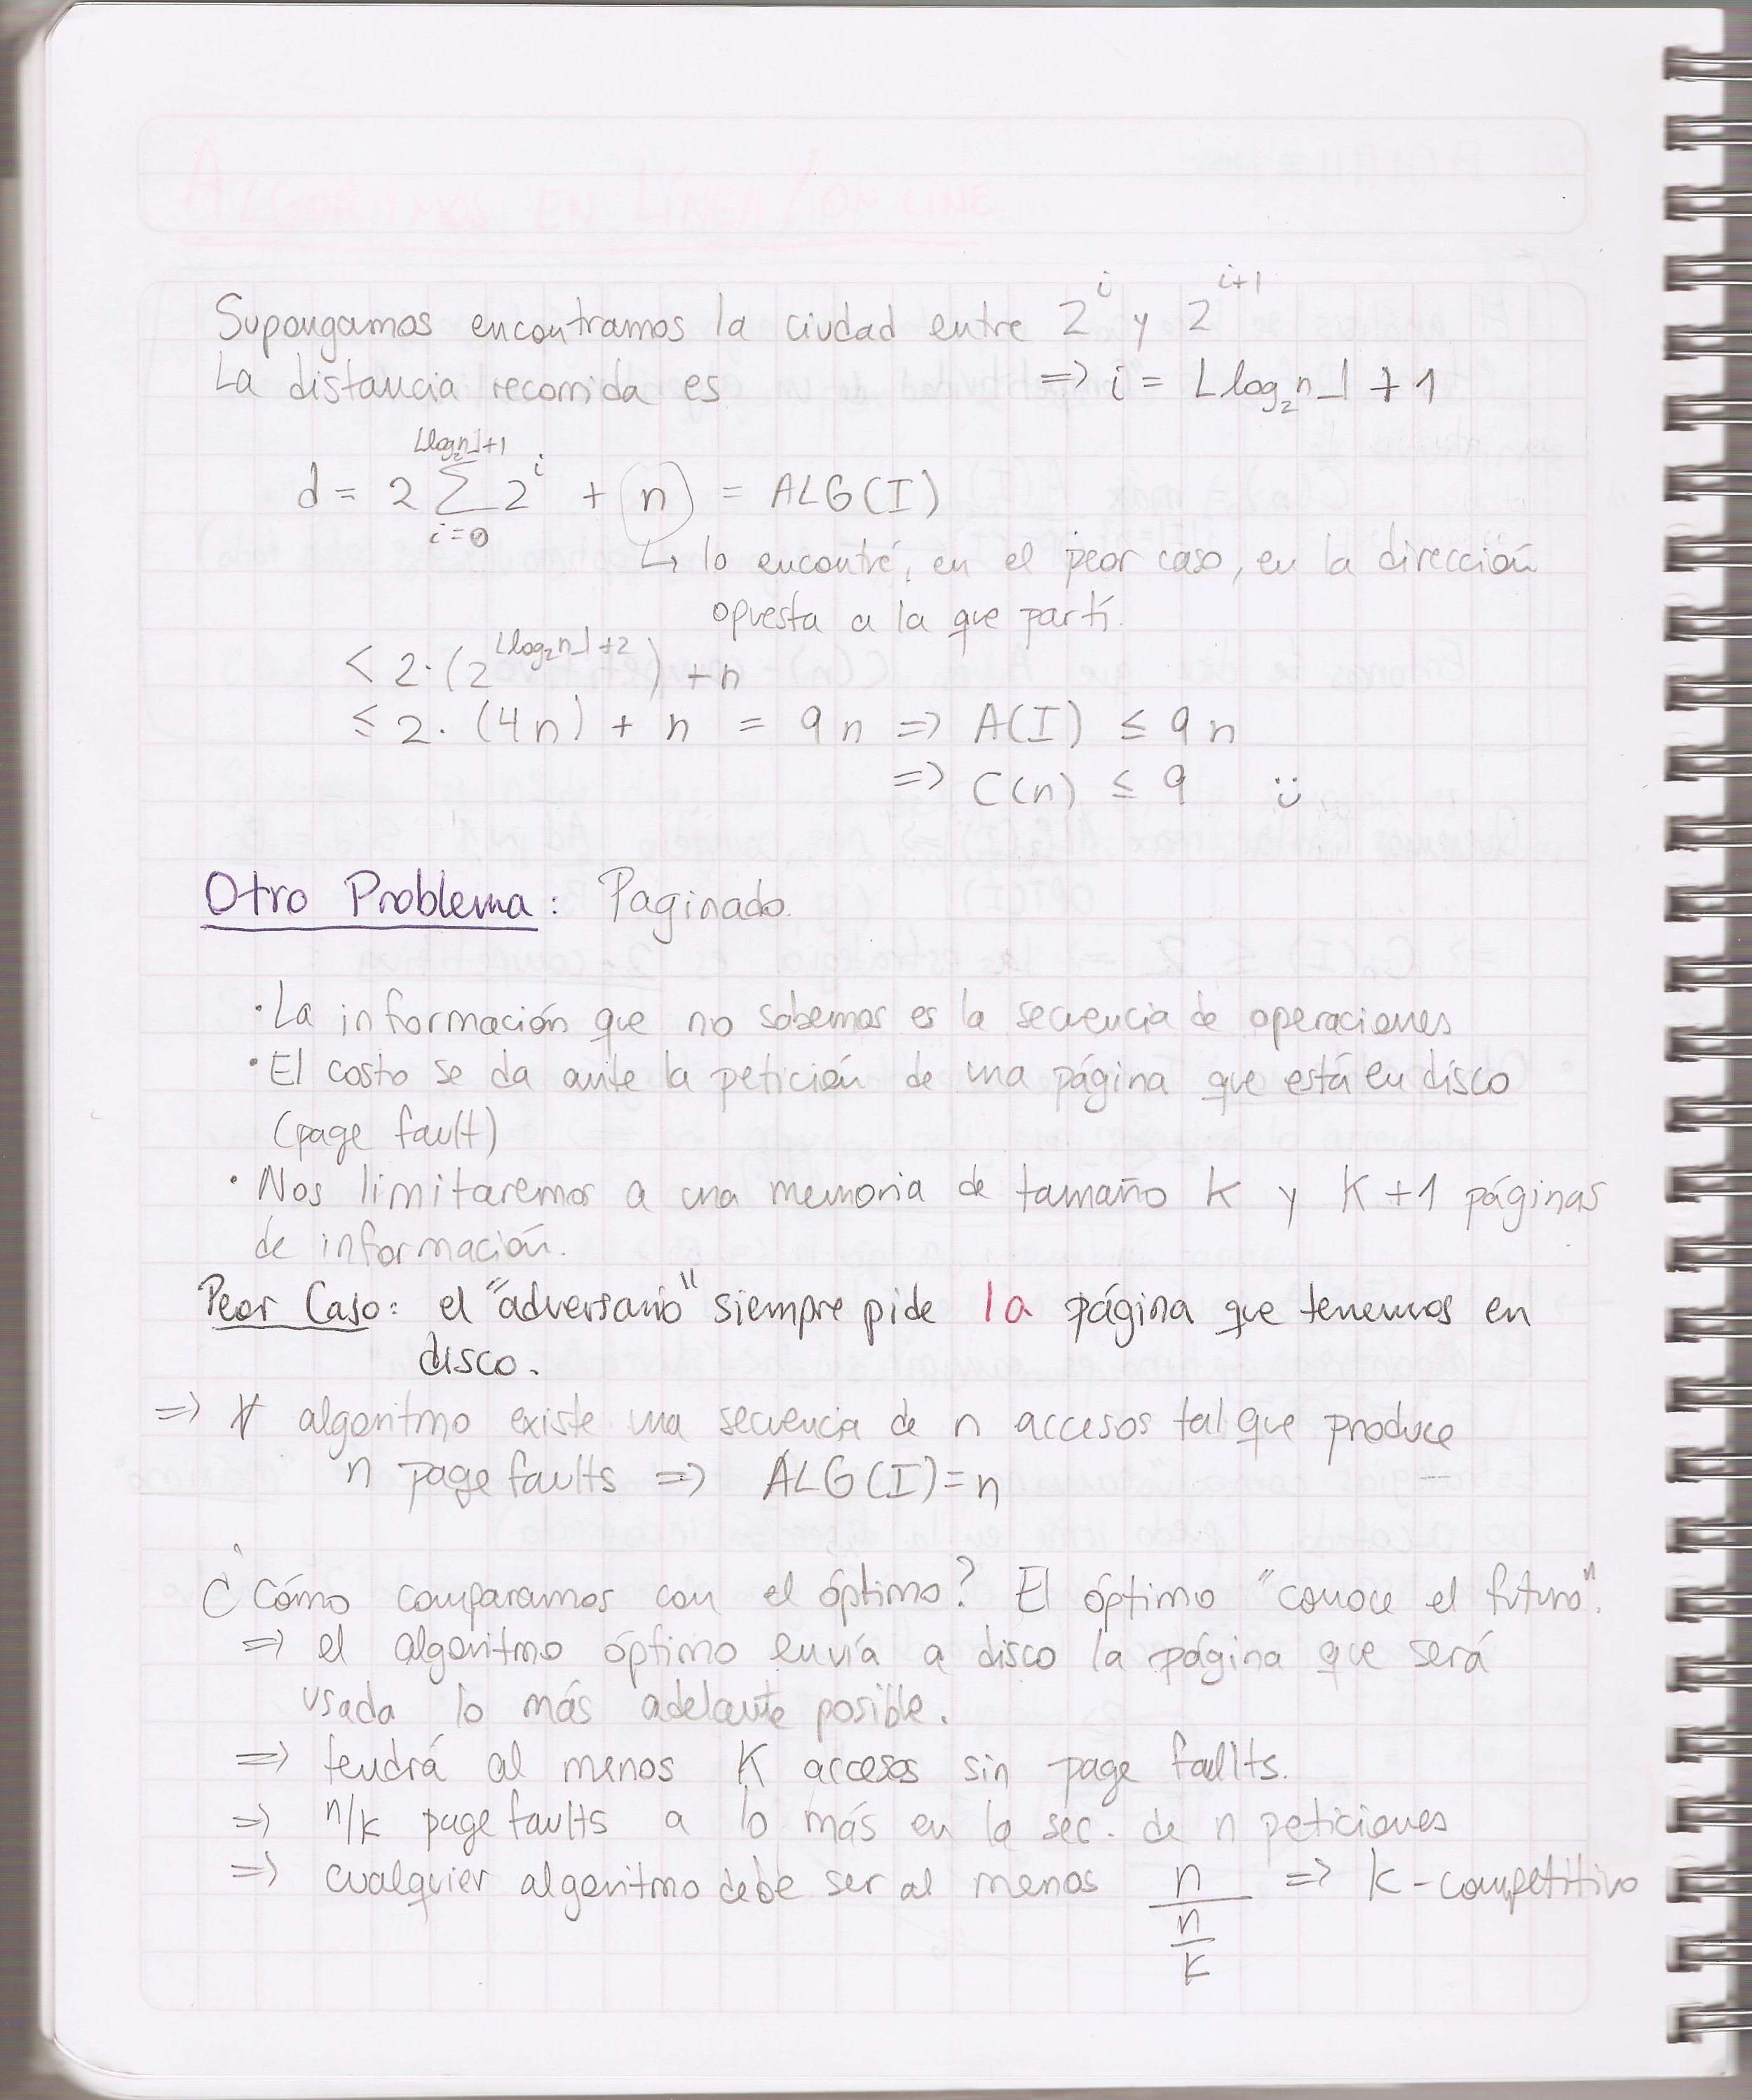 ALGORITMOS EN LÍNEA / ON LINE
Supongamos encontramos la ciudad entre 2^i y 2^{i+1}
La distancia recorrida es => i = ⌊log₂n⌋ + 1
d = 2 ∑_{i=0}^{⌊log₂n⌋+1} 2^i + n = ALG(I)
↳ lo encontré, en el peor caso, en la dirección
opuesta a la que partí.
< 2·(2^{⌊log₂n⌋+2}) + n
≤ 2·(4n) + n = 9n => A(I) ≤ 9n
=> C(n) ≤ 9 :)
Otro Problema: Paginado.
·La información que no sabemos es la secuencia de operaciones
·El costo se da ante la petición de una página que está en disco
(page fault)
·Nos limitaremos a una memoria de tamaño K y K+1 páginas
de información.
Peor Caso: el "adversario" siempre pide la página que tenemos en
disco.
=> ∀ algoritmo existe una secuencia de n accesos tal que produce
n page faults => ALG(I)=n
¿Cómo comparamos con el óptimo? El óptimo "conoce el futuro".
=> el algoritmo óptimo envía a disco la página que será
usada lo más adelante posible.
=> tendrá al menos K accesos sin page faults.
=> n/k page faults a lo más en la sec. de n peticiones
=> cualquier algoritmo debe ser al menos n/(n/K) => K-competitivo